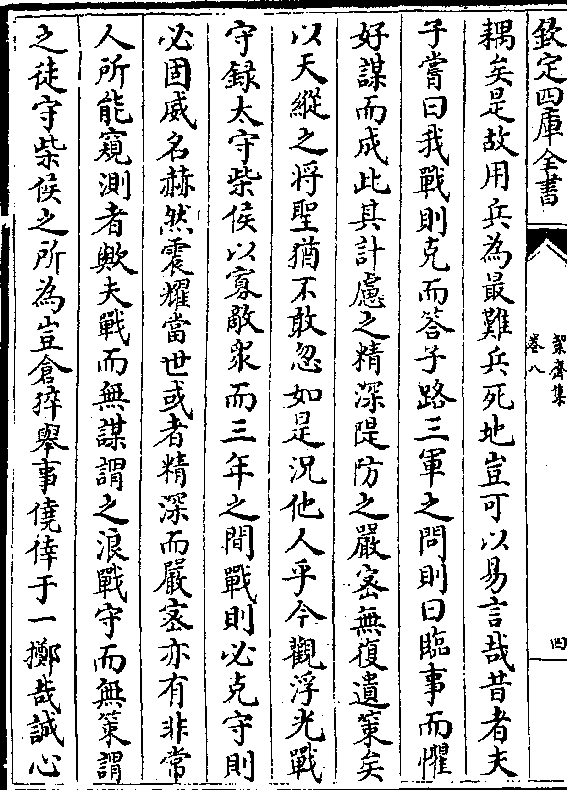 欽定四庫全書
絜齋集
卷八
四
耦矣是故用兵為最難兵死地豈可以易言哉昔者夫
子嘗曰我戰則克而荅子路三軍之問則曰臨事而懼
好謀而成此其計慮之精深隄防之嚴宻無復遺策矣
以天縱之將聖猶不敢忽如是況他人乎今觀浮光戰
守録太守柴侯以寡敵衆而三年之間戰則必克守則
必固威名赫然震耀當世或者精深而嚴宻亦有非常
人所能窺測者歟夫戰而無謀謂之浪戰守而無策謂
之徒守柴侯之所為豈倉猝舉事僥倖于一擲哉誠心